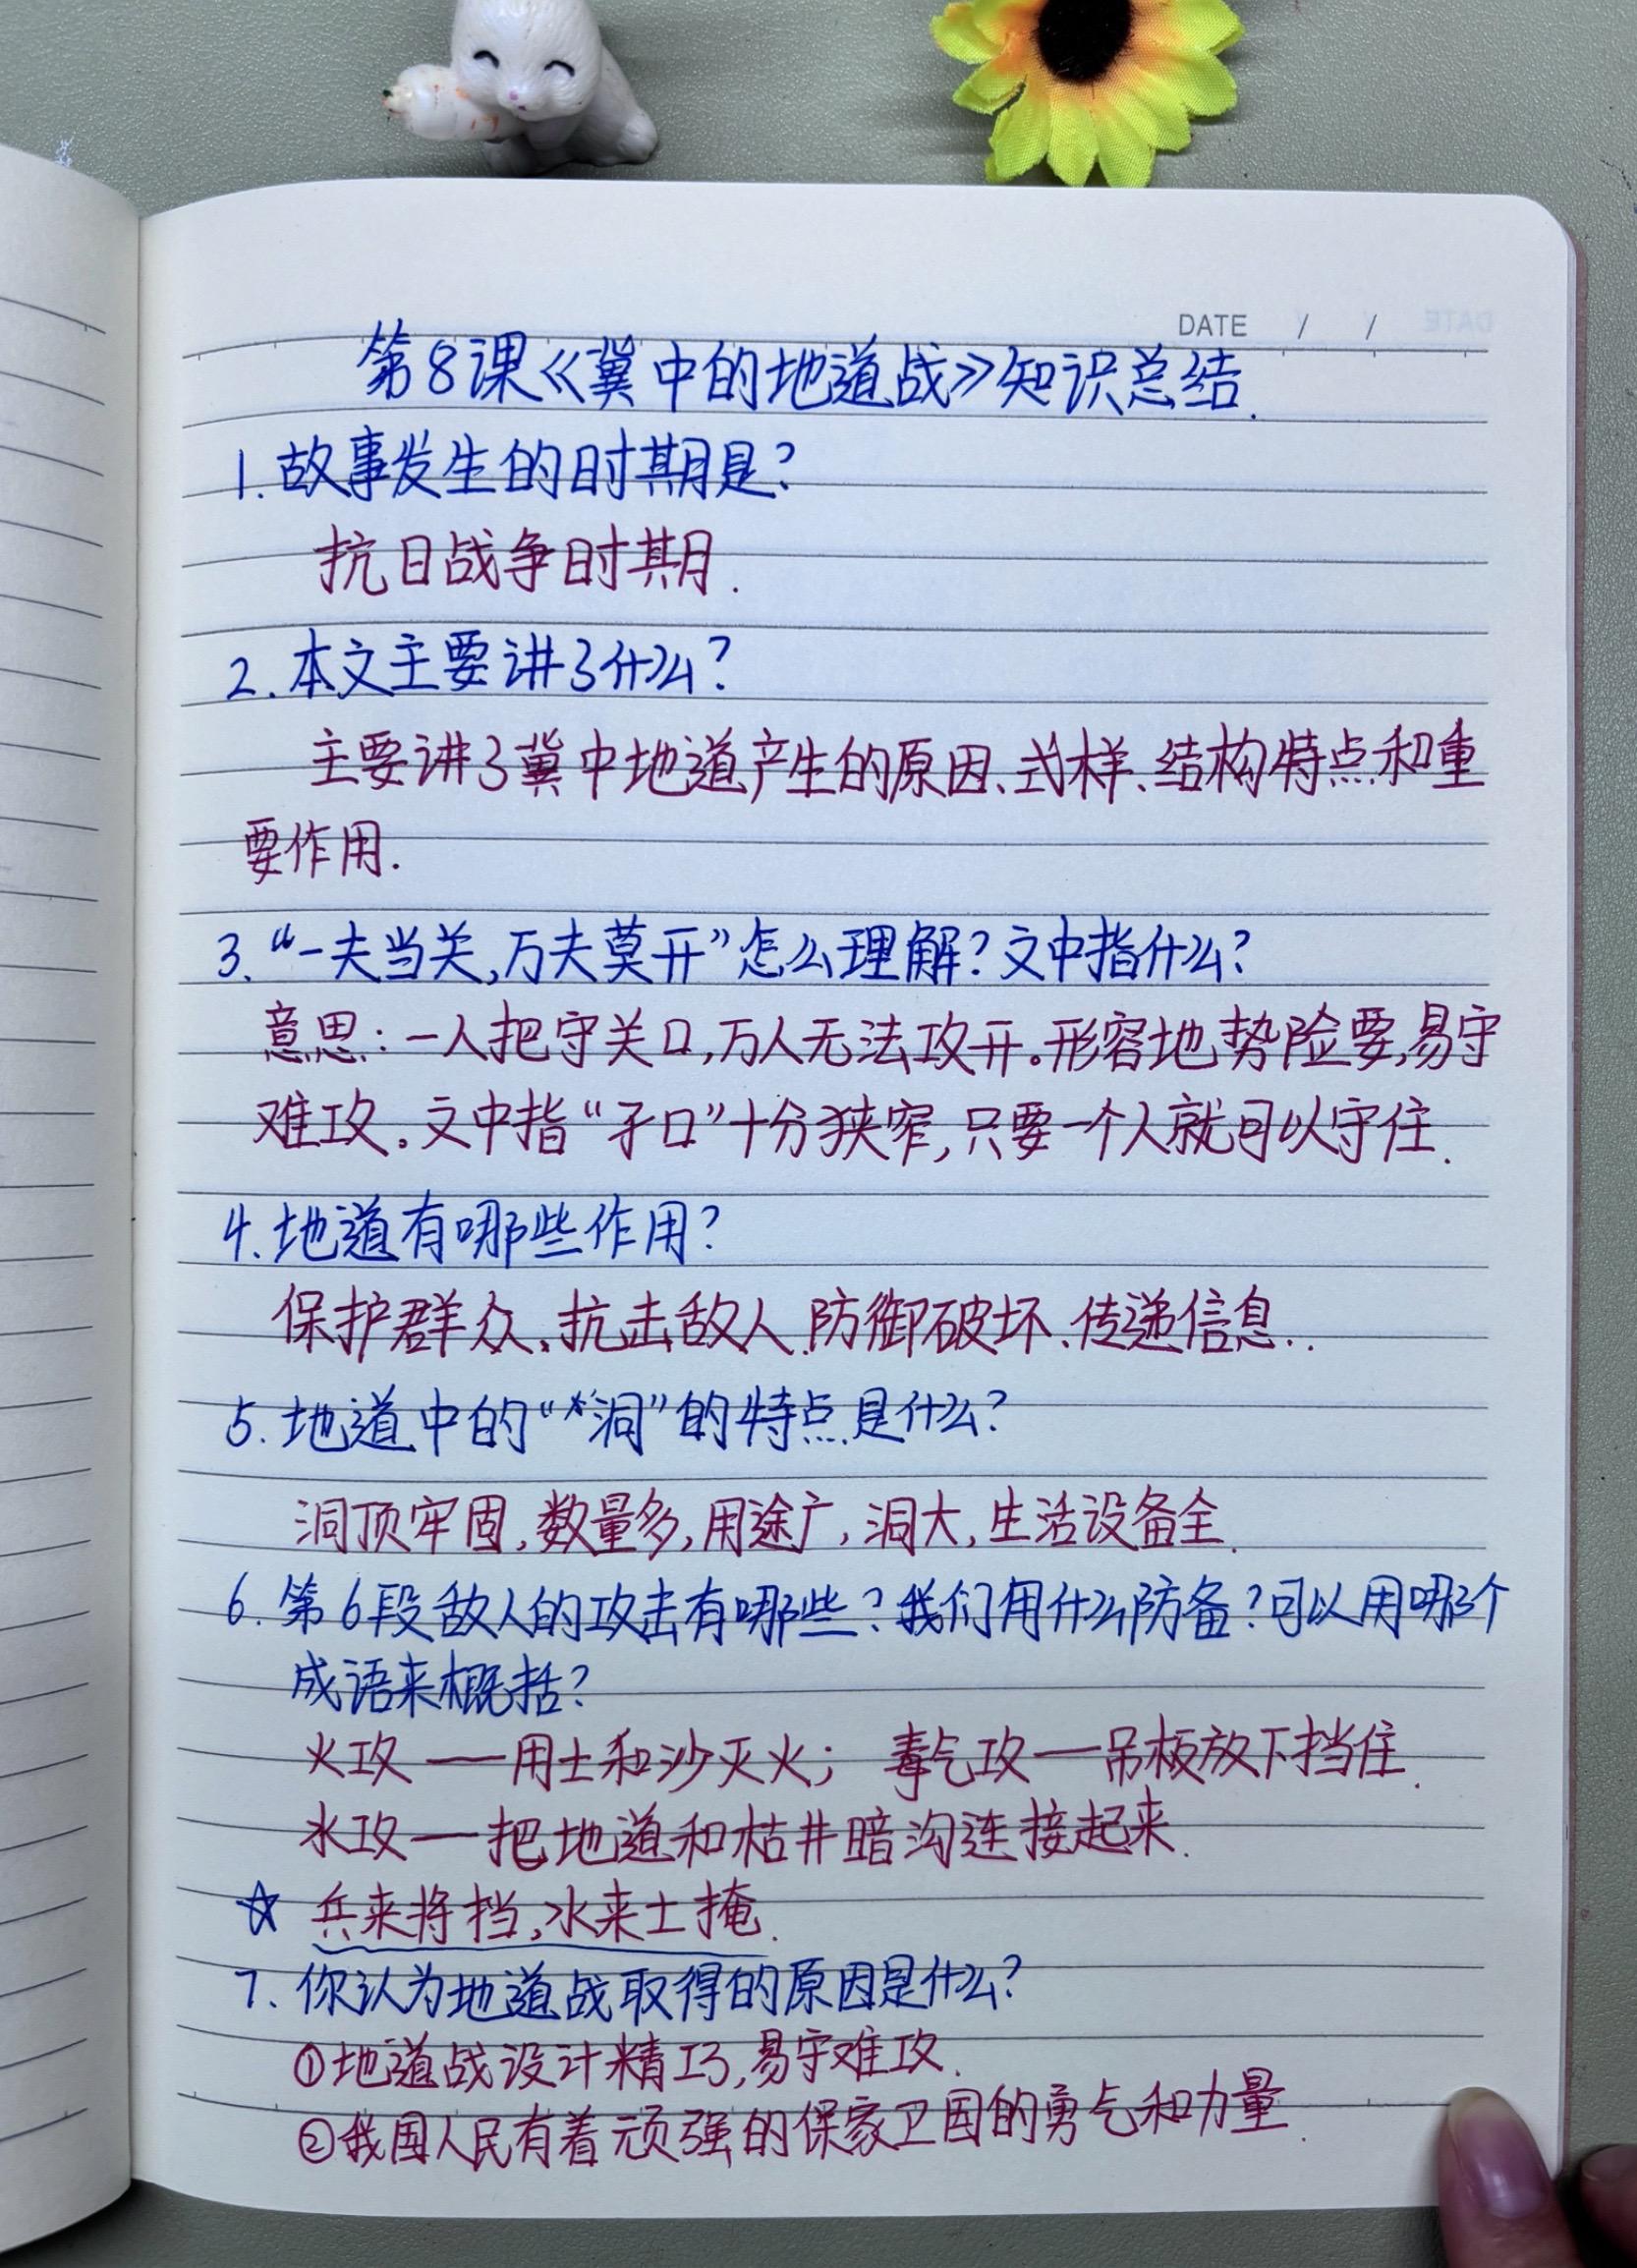 DATE / /
第8课《冀中的地道战》知识总结.
1.故事发生的时期是?
抗日战争时期.
2.本文主要讲了什么?
主要讲了冀中地道产生的原因、式样、结构特点和重
要作用.
3.“一夫当关,万夫莫开”怎么理解?文中指什么?
意思:一人把守关口,万人无法攻开。形容地势险要,易守
难攻。文中指“孑口”十分狭窄,只要一个人就可以守住.
4.地道有哪些作用?
保护群众、抗击敌人、防御破坏、传递信息..
5.地道中的“大洞”的特点是什么?
洞顶牢固,数量多,用途广,洞大,生活设备全.
6.第6段敌人的攻击有哪些?我们用什么防备?可以用哪个
成语来概括?
火攻——用土和沙灭火; 毒气攻——吊板放下挡住.
水攻——把地道和枯井暗沟连接起来.
☆ 兵来将挡,水来土掩.
7.你认为地道战取得的原因是什么?
①地道战设计精巧,易守难攻.
②我国人民有着顽强的保家卫国的勇气和力量.